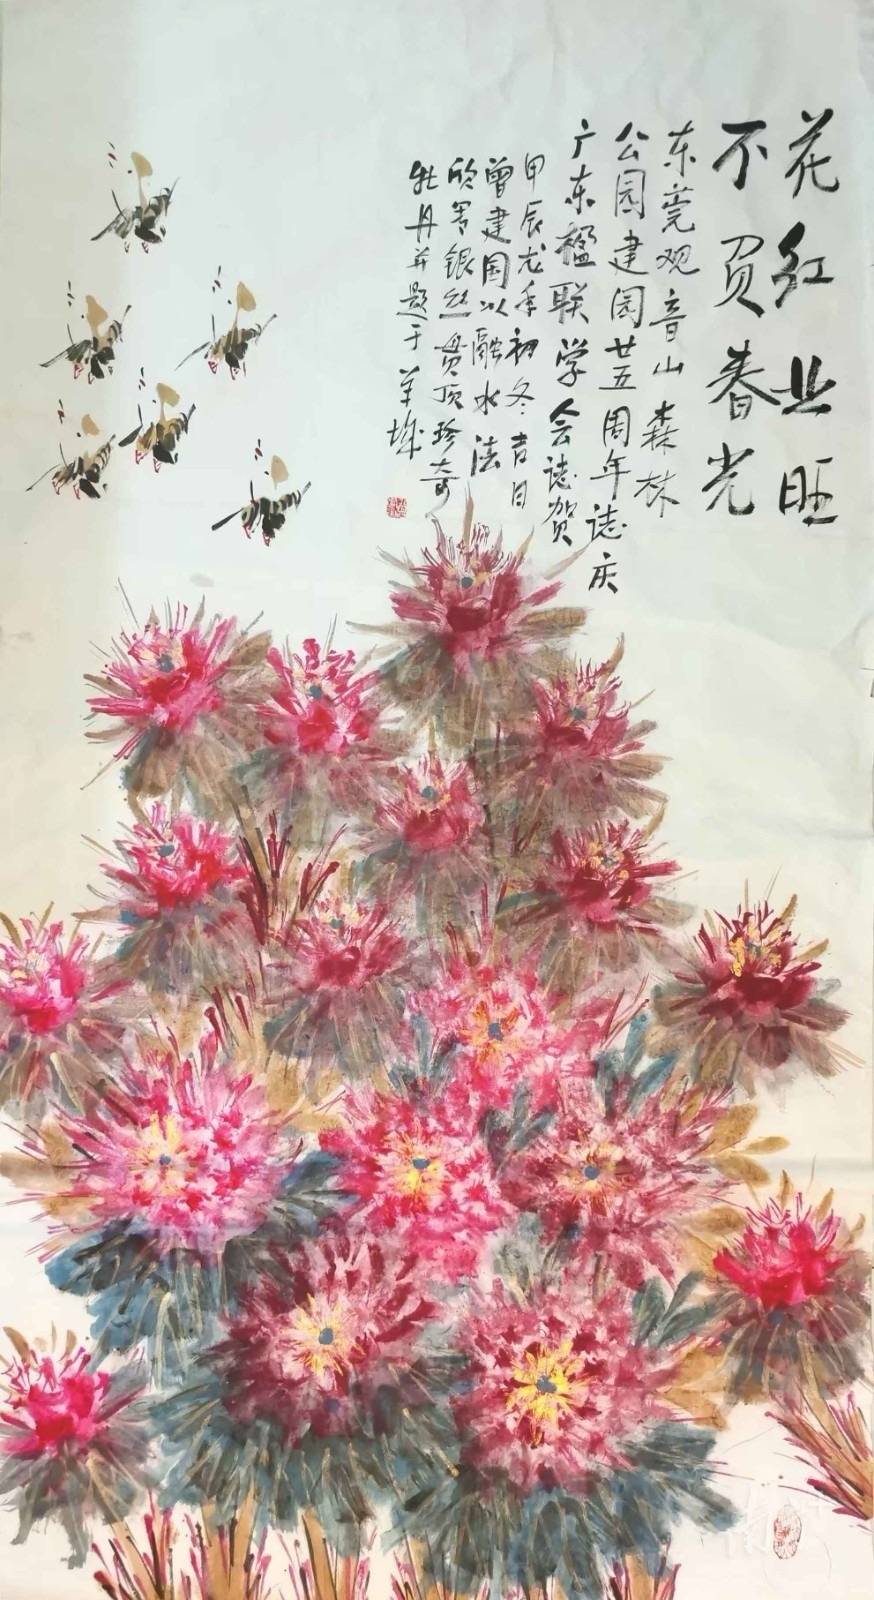 花红业旺
不负春光
东莞观音山森林
公园建园廿五周年誌庆
广东楹联学会誌贺
甲辰龙年初冬吉日
曾建国以融水法
欣写银丝贯顶珍奇
牡丹并题于羊城
南